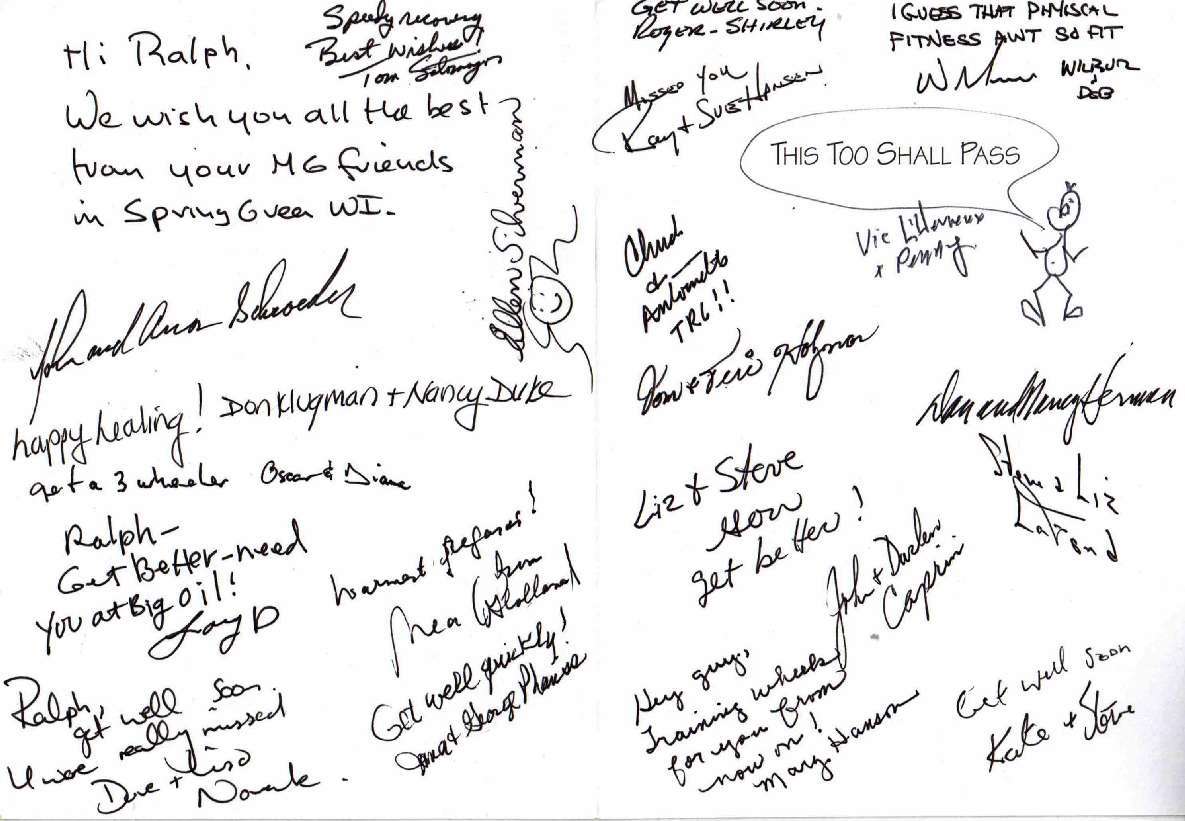 Hi Ralph,
We wish you all the best
from your MG friends
in Spring Green WI.
Speedy recovery
Best Wishes!
Tom
Ellen Silverman
John and Ann Schroeder
happy healing! Don Klugman + Nancy Duke
get a 3 wheeler Oscar & Diane
Ralph-
Get Better-need
you at Big Oil!
D
warmest regards!
Holland
Ralph,
get well soon.
U were really missed
Dave + Lisa
Novak.
Get well quickly!
+ George
GET WELL SOON.
ROGER - SHIRLEY
I GUESS THAT PHYISCAL
FITNESS AINT SO FIT
WILBUR
+
DEB
MISSED YOU
Ray + SUE HANSEN
THIS TOO SHALL PASS
Vic
+ Penny
Chuck
&
Antoinette
TR6!!
Tom & Teri
Dan and Nancy Herman
Liz & Steve
get better!
Steve & Liz
John & Darlene
Hey guy,
Training wheels
for you from
now on!
Mary Hanson
Get well soon
Kate + Steve